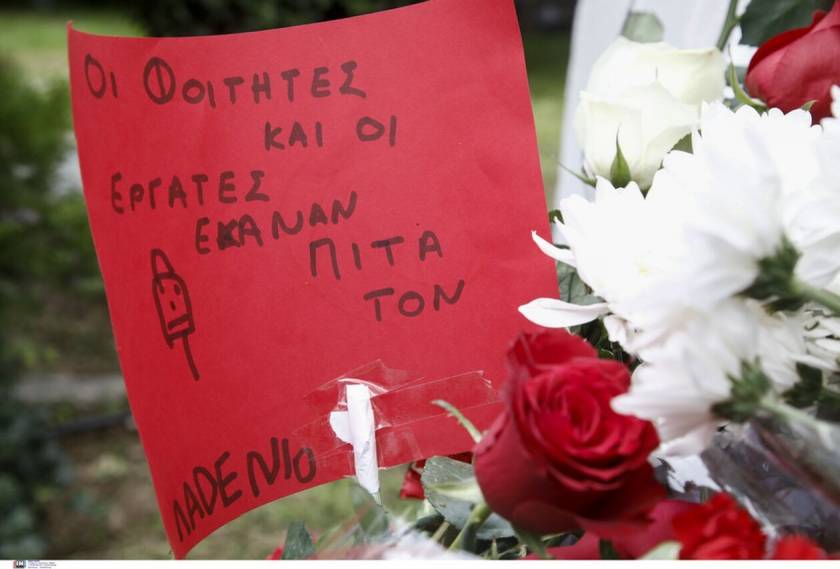 Οι Φοιτητες
και οι
εργατες
εκαναν
πιτα
τον
Λαδενιο